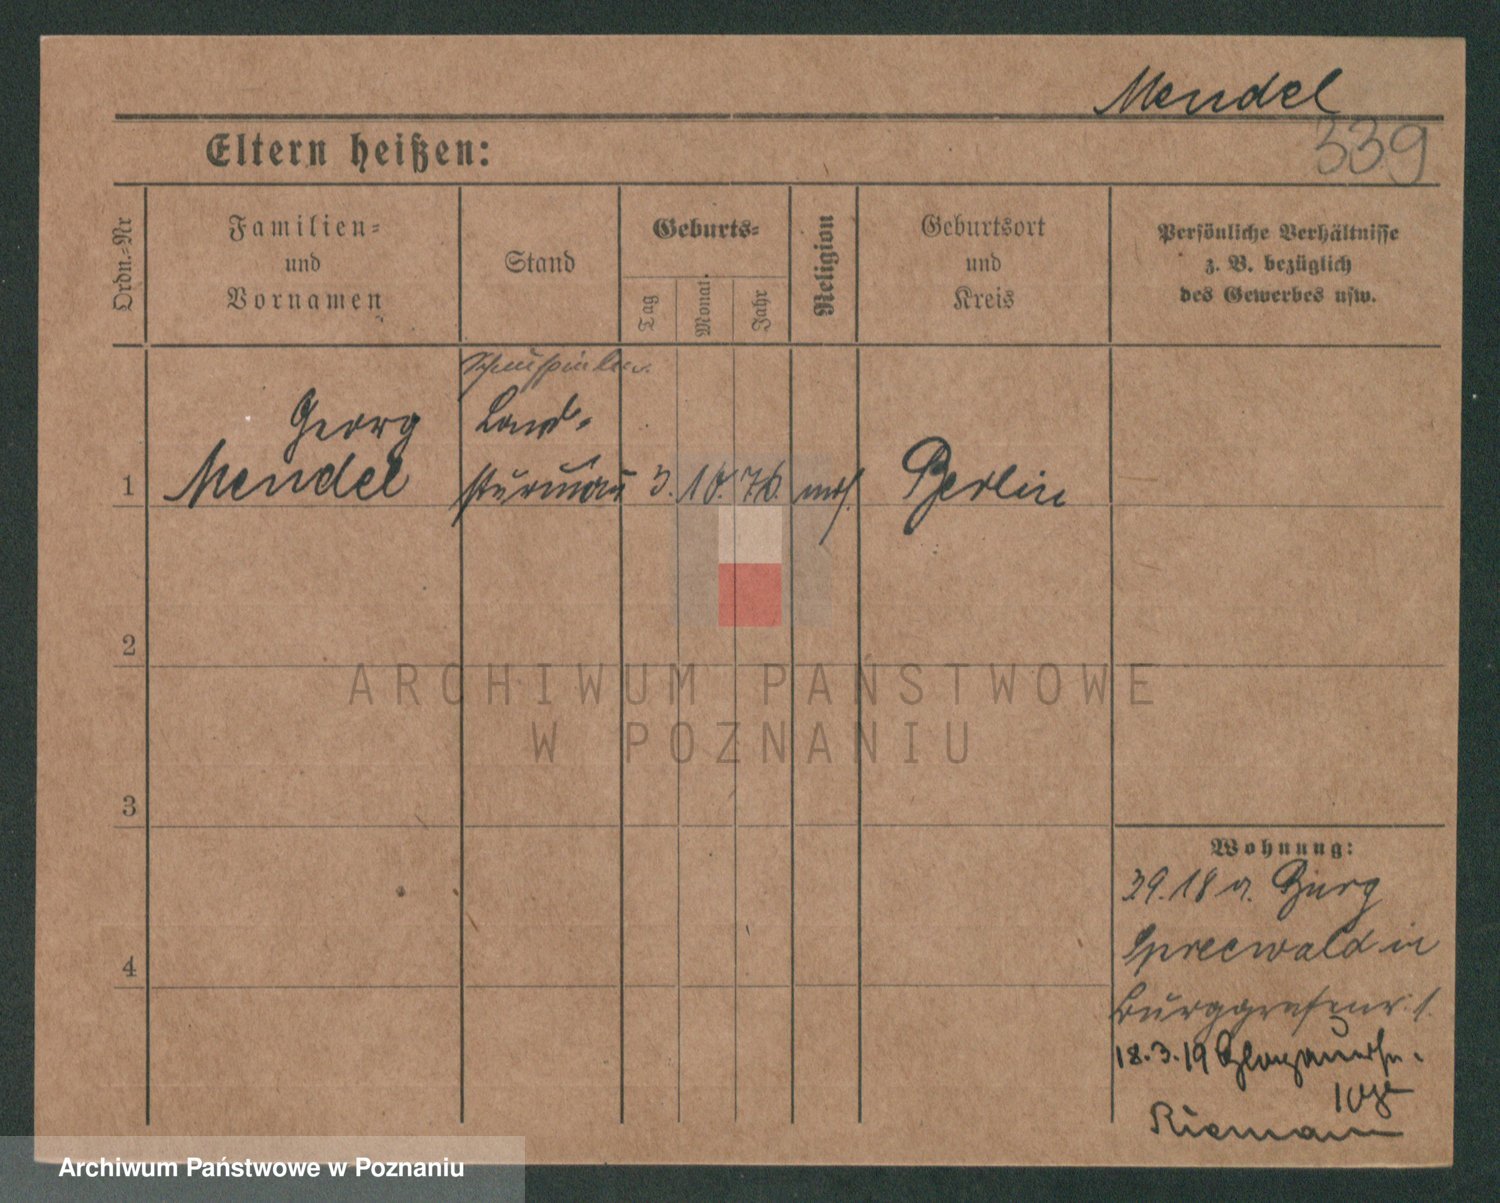 Mendel
339
Eltern heißen:
Ordn.-Nr
Familien-
und
Vornamen
Stand
Geburts-
Tag
Monat
Jahr
Religion
Geburtsort
und
Kreis
Persönliche Verhältnisse
z. B. bezüglich
des Gewerbes usw.
Georg
Mendel
Land-
1
3. 10. 76.
Berlin
2
ARCHIWUM PAŃSTWOWE
W POZNANIU
3
Wohnung:
Burg
Spreewald in
4
18.3.19
Riemann
Archiwum Państwowe w Poznaniu